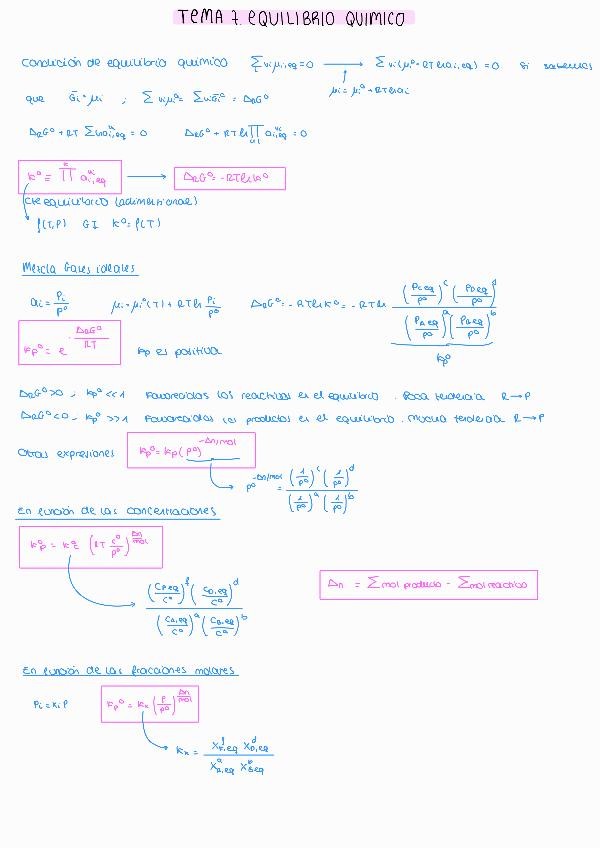 TEMA 7. EQUILIBRIO QUIMICO
Condición de equilibrio químico ∑νiμi,eq=0 → ∑νi(μi°+RTlnai,eq)=0 Si sabemos
μi=μi°+RTlnai
que Ḡi=μi ; ∑νiμi°=∑νiḠi°=ΔRG°
ΔRG°+RT∑lnai,eq^νi=0 ΔRG°+RTln∏ai,eq^νi=0
K°=∏ai,eq^νi → ΔRG°=-RTlnK°
cte equilibrio (adimensional)
f(T,P) GI K°=f(T)
Mezcla Gases ideales
ai=Pi/P° μi=μi°(T)+RTln Pi/P° ΔRG°=-RTlnK°=-RTln (PC,eq/P°)^c (PD,eq/P°)^d / (PA,eq/P°)^a (PB,eq/P°)^b
Kp°
Kp°=e^-ΔRG°/RT Kp es positiva
ΔRG°>0, Kp°<<1 Favorecidos los reactivos en el equilibrio. Poca tendencia R→P
ΔRG°<0, Kp°>>1 Favorecidos los productos en el equilibrio. Mucha tendencia R→P
Otras expresiones Kp°=Kp(P°)^-Δn/mol
P°^-Δn/mol = (1/P°)^c (1/P°)^d / (1/P°)^a (1/P°)^b
En función de las concentraciones
Kp°=Kc° (RT c°/P°)^Δn/mol
Δn = ∑mol producto - ∑mol reactivo
(CC,eq/C°)^c (CD,eq/C°)^d / (CA,eq/C°)^a (CB,eq/C°)^b
En función de las fracciones molares
Pi=xiP Kp°=Kx (P/P°)^Δn/mol
Kx = XC,eq^c XD,eq^d / XA,eq^a XB,eq^b